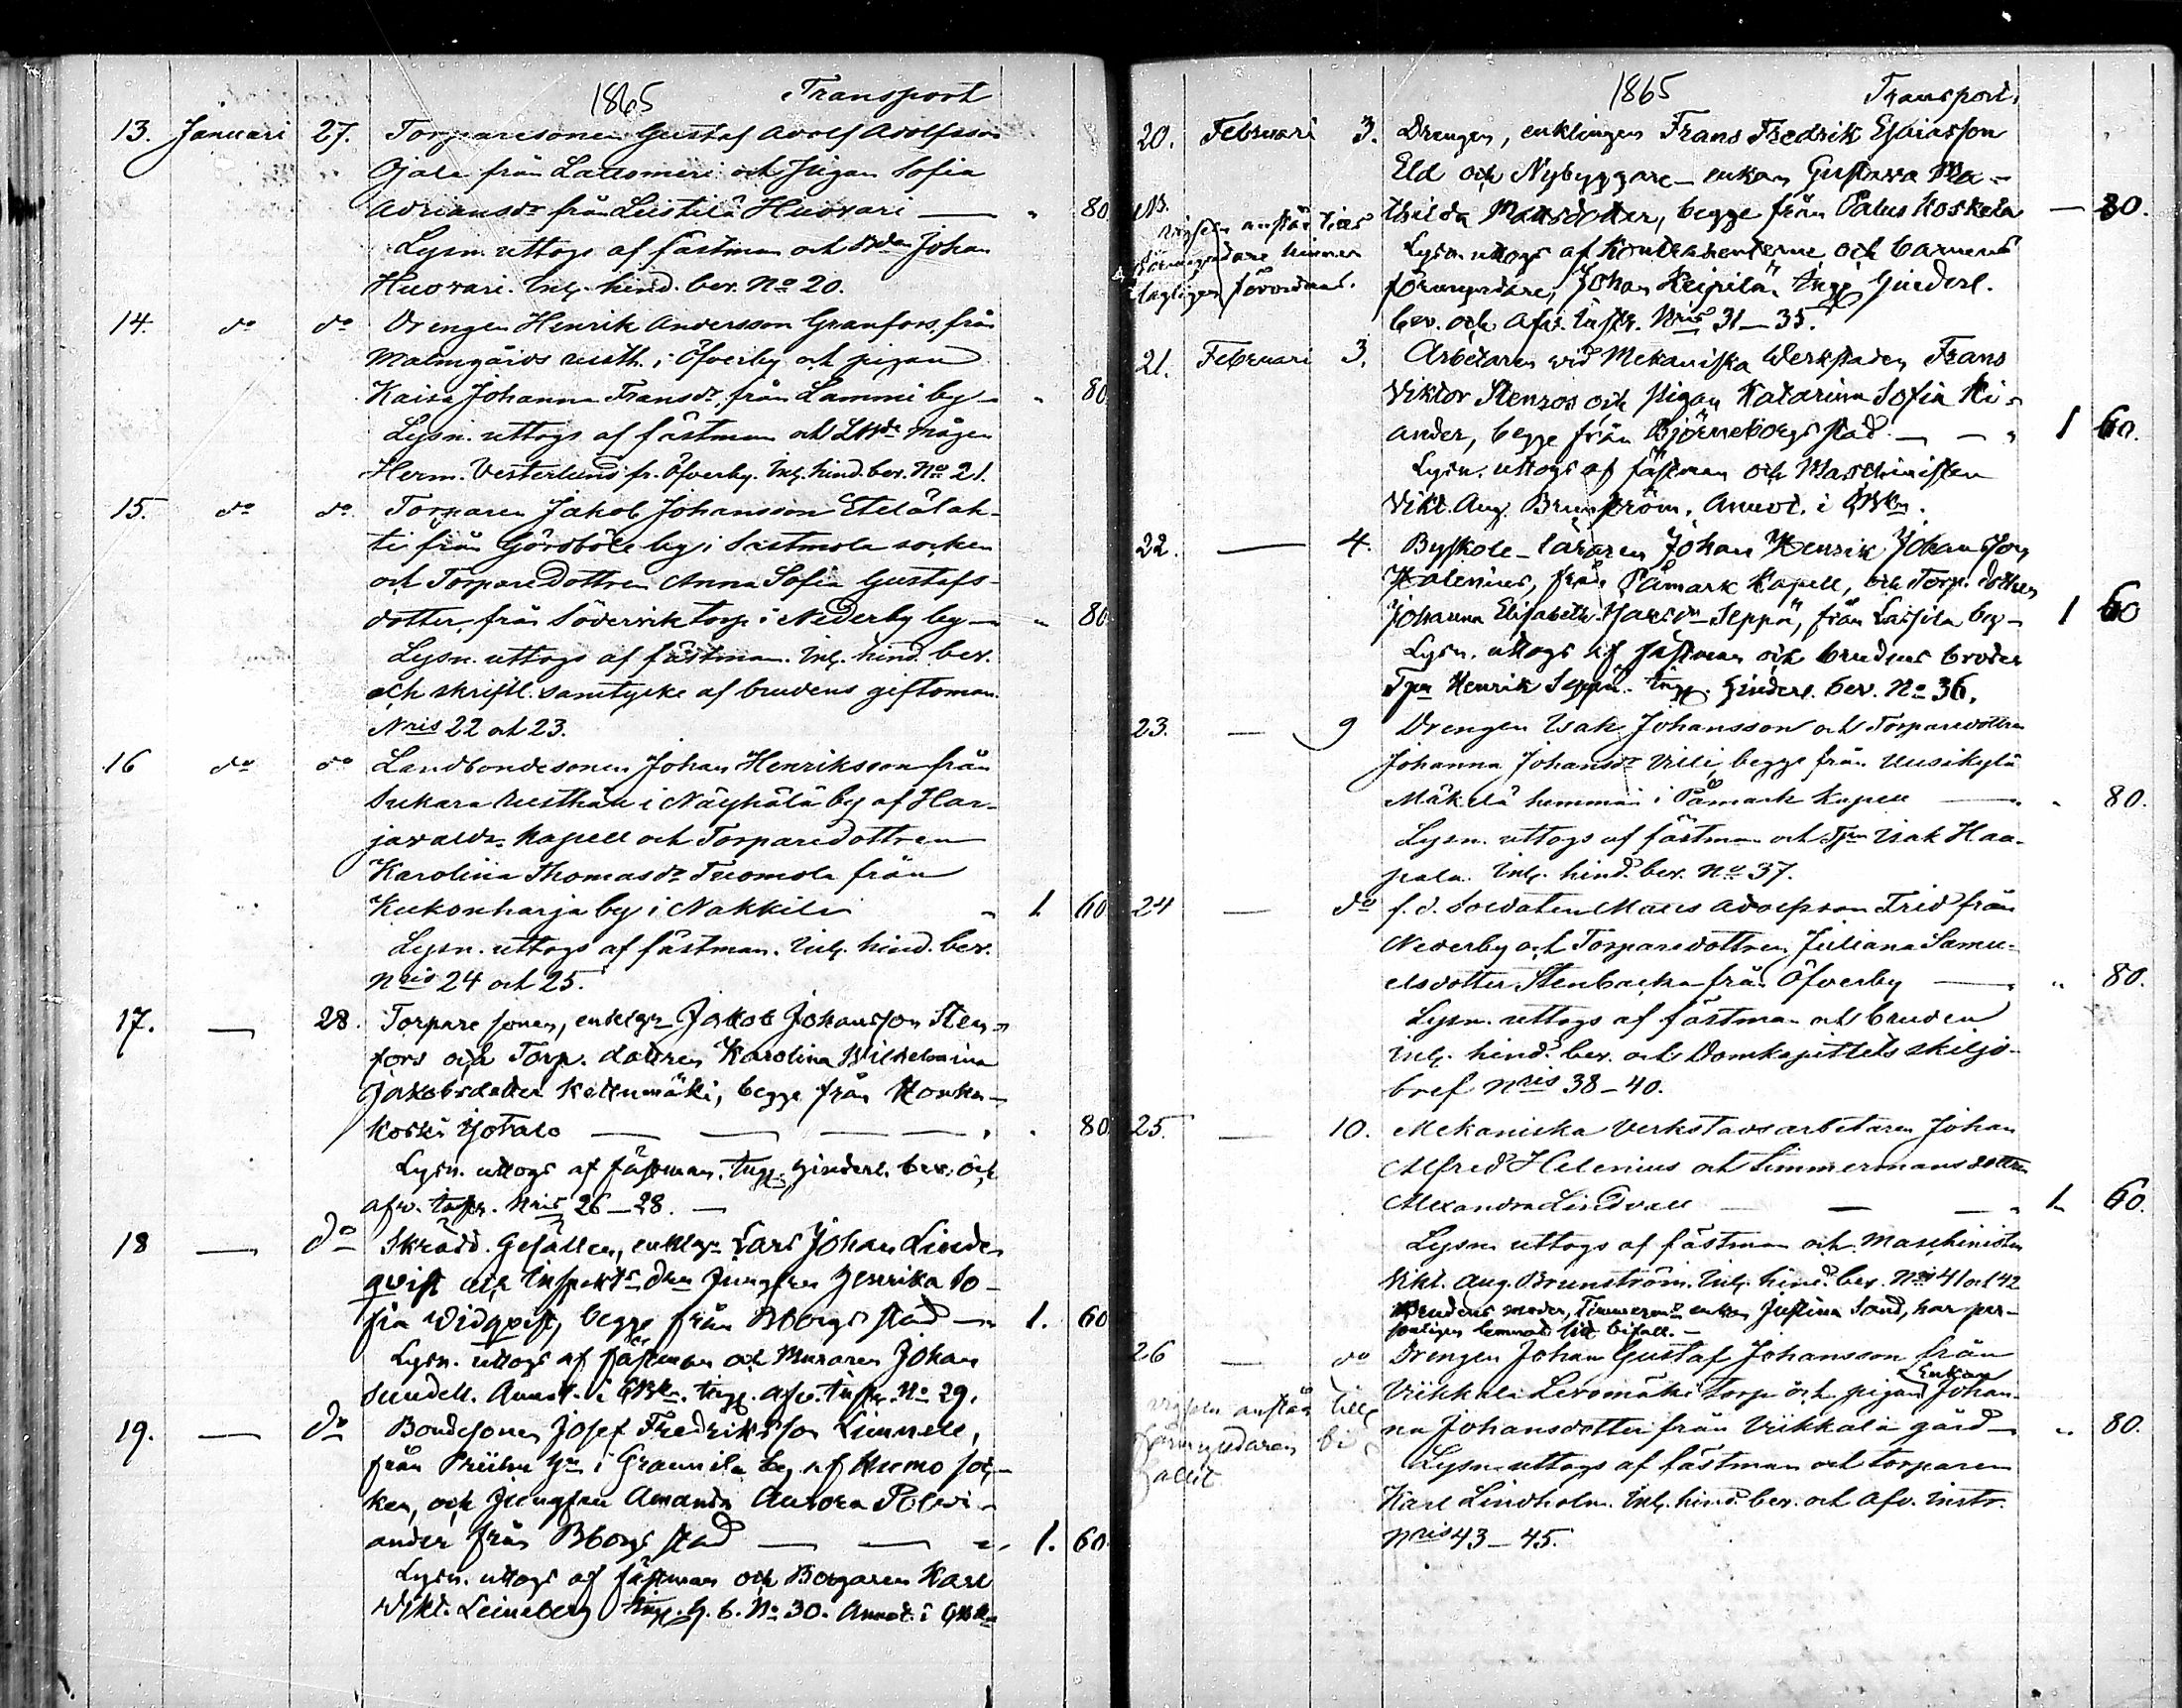 1865 Transport
13. Januari 27. Torparesonen Gustaf Adolf Adolfsson
Ojala från Lattomeri och Pigan Sofia
Adriansdr från Leistilä Huovari — " 80
Lysn. uttogs af fästman och Johan
Huovari. Inl. hind. bev. No 20.
14. do do Drengen Henrik Andersson Granfors, från
Malmgårds rusth. i Öfverby och pigan
Kaisa Johanna Fransdr, från Lammi by — " 80
Lysn. uttogs af fästman och mågen
Herm. Vesterlund fr. Öfverby. Inl. hind. bev. No 21.
15. do do Torparen Jakob Johansson Etelälah-
ti från Gårdböle by i Sastmola socken
och Torparedottren Anna Sofia Gustafs-
dotter, från Södervik torp i Nederby by — " 80
Lysn. uttogs af fästman. Inl. hind. bev.
och skriftl. samtycke af brudens giftoman.
Nris 22 och 23.
16 do do Landbondesonen Johan Henriksson från
Sukara Rusthåll i Näyhälä by af Har-
javalda Kapell och Torparedottren
Karolina Thomasdr Tuomola från
Kukonharja by i Nakkila " 1 60
Lysn. uttogs af fästman. Inl. hind. bev.
Nris 24 och 25.
17. — 28. Torpare sonen, enklgn Jakob Johansson Sten-
fors och Torp. dottren Karolina Wilhelmina
Jakobsdotter Ketunmäki, begge från Honka-
koski Yotalo — — — — " 80
Lysn. uttogs af fästman. Ingg. hinderl. bev. och
afv. instr. Nris 26—28. —
18 — do Skrädd. Gesällen, enklgn Lars Johan Linde
qvist och Inspektrs Jungfru Henrika So-
fia Widqvist, begge från Bborgs stad — 1. 60
Lysn. uttogs af fästman och Muraren Johan
Sundell. Annot. i GBkn. Ingg. afv. instr. No 29.
19. — do Bondesonen Josef Fredriksson Limnell,
från Priihu Hn i Graunila by af Kumo soc-
ken, och Jungfru Amanda Aurora Polvi-
ander från Bborgs stad — — " 1. 60
Lysn. uttogs af fästman och Borgaren Karl
Vikt. Leineberg Ingg. H. b. No 30. Annot. i GBkn
1865 Transport.
20. Februari 3. Drengen, enklingen Frans Fredrik Esaiasson
Eld och Nybyggare-enkan Gustava Ma-
NB. thilda Mattsdotter, begge från Palus Koskela — 80.
vigseln anstår tills Lysn. uttogs af Kontrahenterne och barnens
förmyndare hinner förmyndare, Johan Keipilä. Ingg. hinderl.
lagligen förordnas. bev. och afv. instr. Nris 31—35.
21. Februari 3. Arbetaren vid Mekaniska Werkstaden Frans
Viktor Stenros och pigan Katarina Sofia Ki-
ander, begge från Björneborgs stad — — " 1 60.
Lysn. uttogs af fästman och Maschinisten
Vikt. Aug. Brunström. Annot. i GBkn.
22. — 4. Byskole-läraren Johan Henrik Johansson
Halenius, från Påmark Kapell, och Torp. dottren
Johanna Elisabeth Seppä, från Lassila by — 1 60
Lysn. uttogs af fästman och brudens broder
Tpn Henrik Seppä. Ingg. hinderl. bev. No 36.
23. — 9 Drengen Isak Johansson och Torparedottren
Johanna Johansdr Villi, begge från Uusikylä
Mäkelä hemman i Påmark Kapell — " 80.
Lysn. uttogs af fästman och Tpn Isak Haa-
pala. Inl. hind. bev. No 37.
24 — do f. d. Soldaten Matts Adolfsson Frid från
Nederby och Torparedottren Juliana Samu-
elsdotter Stenbacka från Öfverby — " 80.
Lysn. uttogs af fästman och bruden
inl. hind. bev. och Domkapitlets skiljo-
bref Nris 38—40.
25. — 10. Mekaniska Verkstadsarbetaren Johan
Alfred Helenius och Timmermansdottren
Alexandra Lindvall — — " 1 60.
Lysn. uttogs af fästman och Maschinisten
Vikt. Aug. Brunström. Inl. hind. bev. Nris 41 och 42
Brudens moder, Timmerms enkan Justina Sand, har per-
sonligen lemnat sitt bifall. —
26 — do Drengen Johan Gustaf Johansson från
Enkan
Viikkala Levomäki torp och pigan Johan-
vigseln anstår tills na Johansdotter från Viikkala gård — " 80.
förmyndaren bi Lysn. uttogs af fästman och torparen
fallit. Karl Lindholm. Inl. hind. bev. och afv. instr.
Nris 43—45.